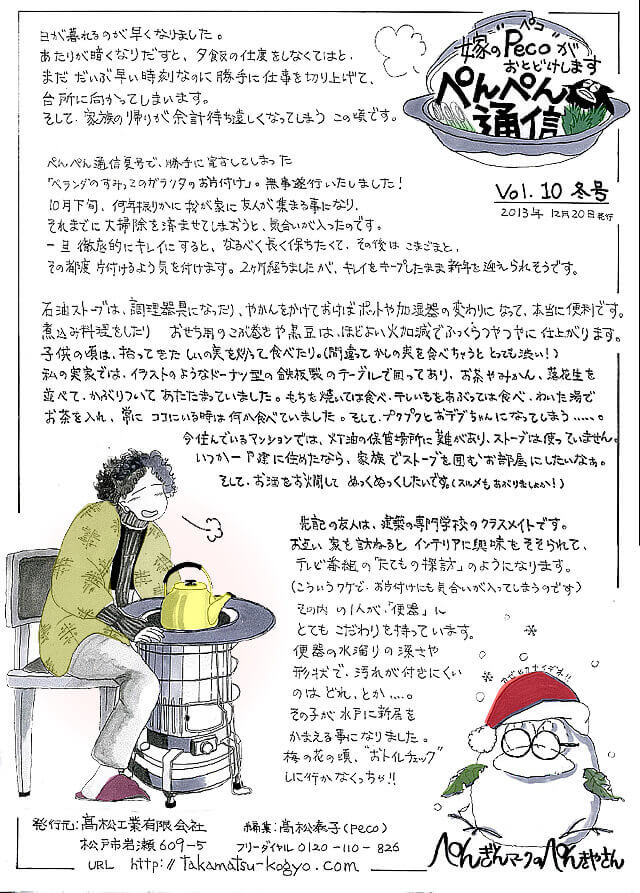 日が暮れるのが早くなりました。
あたりが暗くなりだすと、夕飯の仕度をしなくてはと、
まだ だいぶ早い時刻なのに勝手に仕事を切り上げて、
台所に向かってしまいます。
そして、家族の帰りが余計待ち遠しくなってしまう この頃です。
嫁の"Peco"が
ペコ
おとどけします
ぺんぺん
通信
Vol.10 冬号
2013年 12月20日発行
ぺんぺん通信夏号で、勝手に宣言してしまった
「ベランダのすみってのガラクタのお片付け」。無事遂行いたしました!
10月下旬、何年振りかに 我が家に友人が集まる事になり、
それまでに 大掃除を済ませてしまおうと、気合いが入ったのです。
一旦 徹底的にキレイにすると、なるべく長く保ちたくて、その後は こまごまと、
その都度 片付けるよう気を付けます。2ヶ月経ちましたが、キレイをキープしたまま新年を迎えられそうです。
石油ストーブは、調理器具になったり、やかんをかけておけばポットや加湿器の変わりになって、本当に便利です。
煮込み料理をしたり おせち用のこぶ巻きや黒豆は、ほどよい火加減でふっくらつやつやに仕上がります。
子供の頃は、拾ってきた しいの実を炒って食べたり。(間違ってかしの実を食べちゃうと とっても渋い!)
私の実家では、イラストのようなドーナツ型の鉄板製のテーブルで囲ってあり、お茶やみかん、落花生を
並べて、かぶりついて あたたまっていました。もちを焼いては食べ、干しいもをあぶっては食べ、わいた湯で
お茶を入れ、常に ココにいる時は何か食べていました。そして、プクプクとおデブちゃんになってしまう……。
今住んでいるマンションでは、灯油の保管場所に難があり、ストーブは使っていません。
いつか一戸建に住めたなら、家族でストーブを囲むお部屋にしたいなぁ。
そして、お酒をお燗して ぬっくぬっくしたいです。(スルメもあぶりましょか!)
先記の友人は、建築の専門学校のクラスメイトです。
お互い 家を訪ねると インテリアに興味をそそられて、
テレビ番組の「たてもの探訪」のようになります。
(こういうワケで、お片付けにも気合いが入ってしまうのです)
その内 の1人が、「便器」に
とても こだわりを持っています。
便器の水溜りの深さや
形状で、汚れが付きにくい
のは どれ、とか….。
その子が 水戸に新居を
かまえる事になりました。
梅の花の頃、"おトイレチェック"
しに行かなくっちゃ!!
カゼヒクナイデネ!!
発行元:高松工業有限会社
松戸市岩瀬609-5
編集:高松泰子(peco)
フリーダイヤル 0120-110-826
URL http://takamatsu-kogyo.com
ぺんぎんマークのぺんきやさん